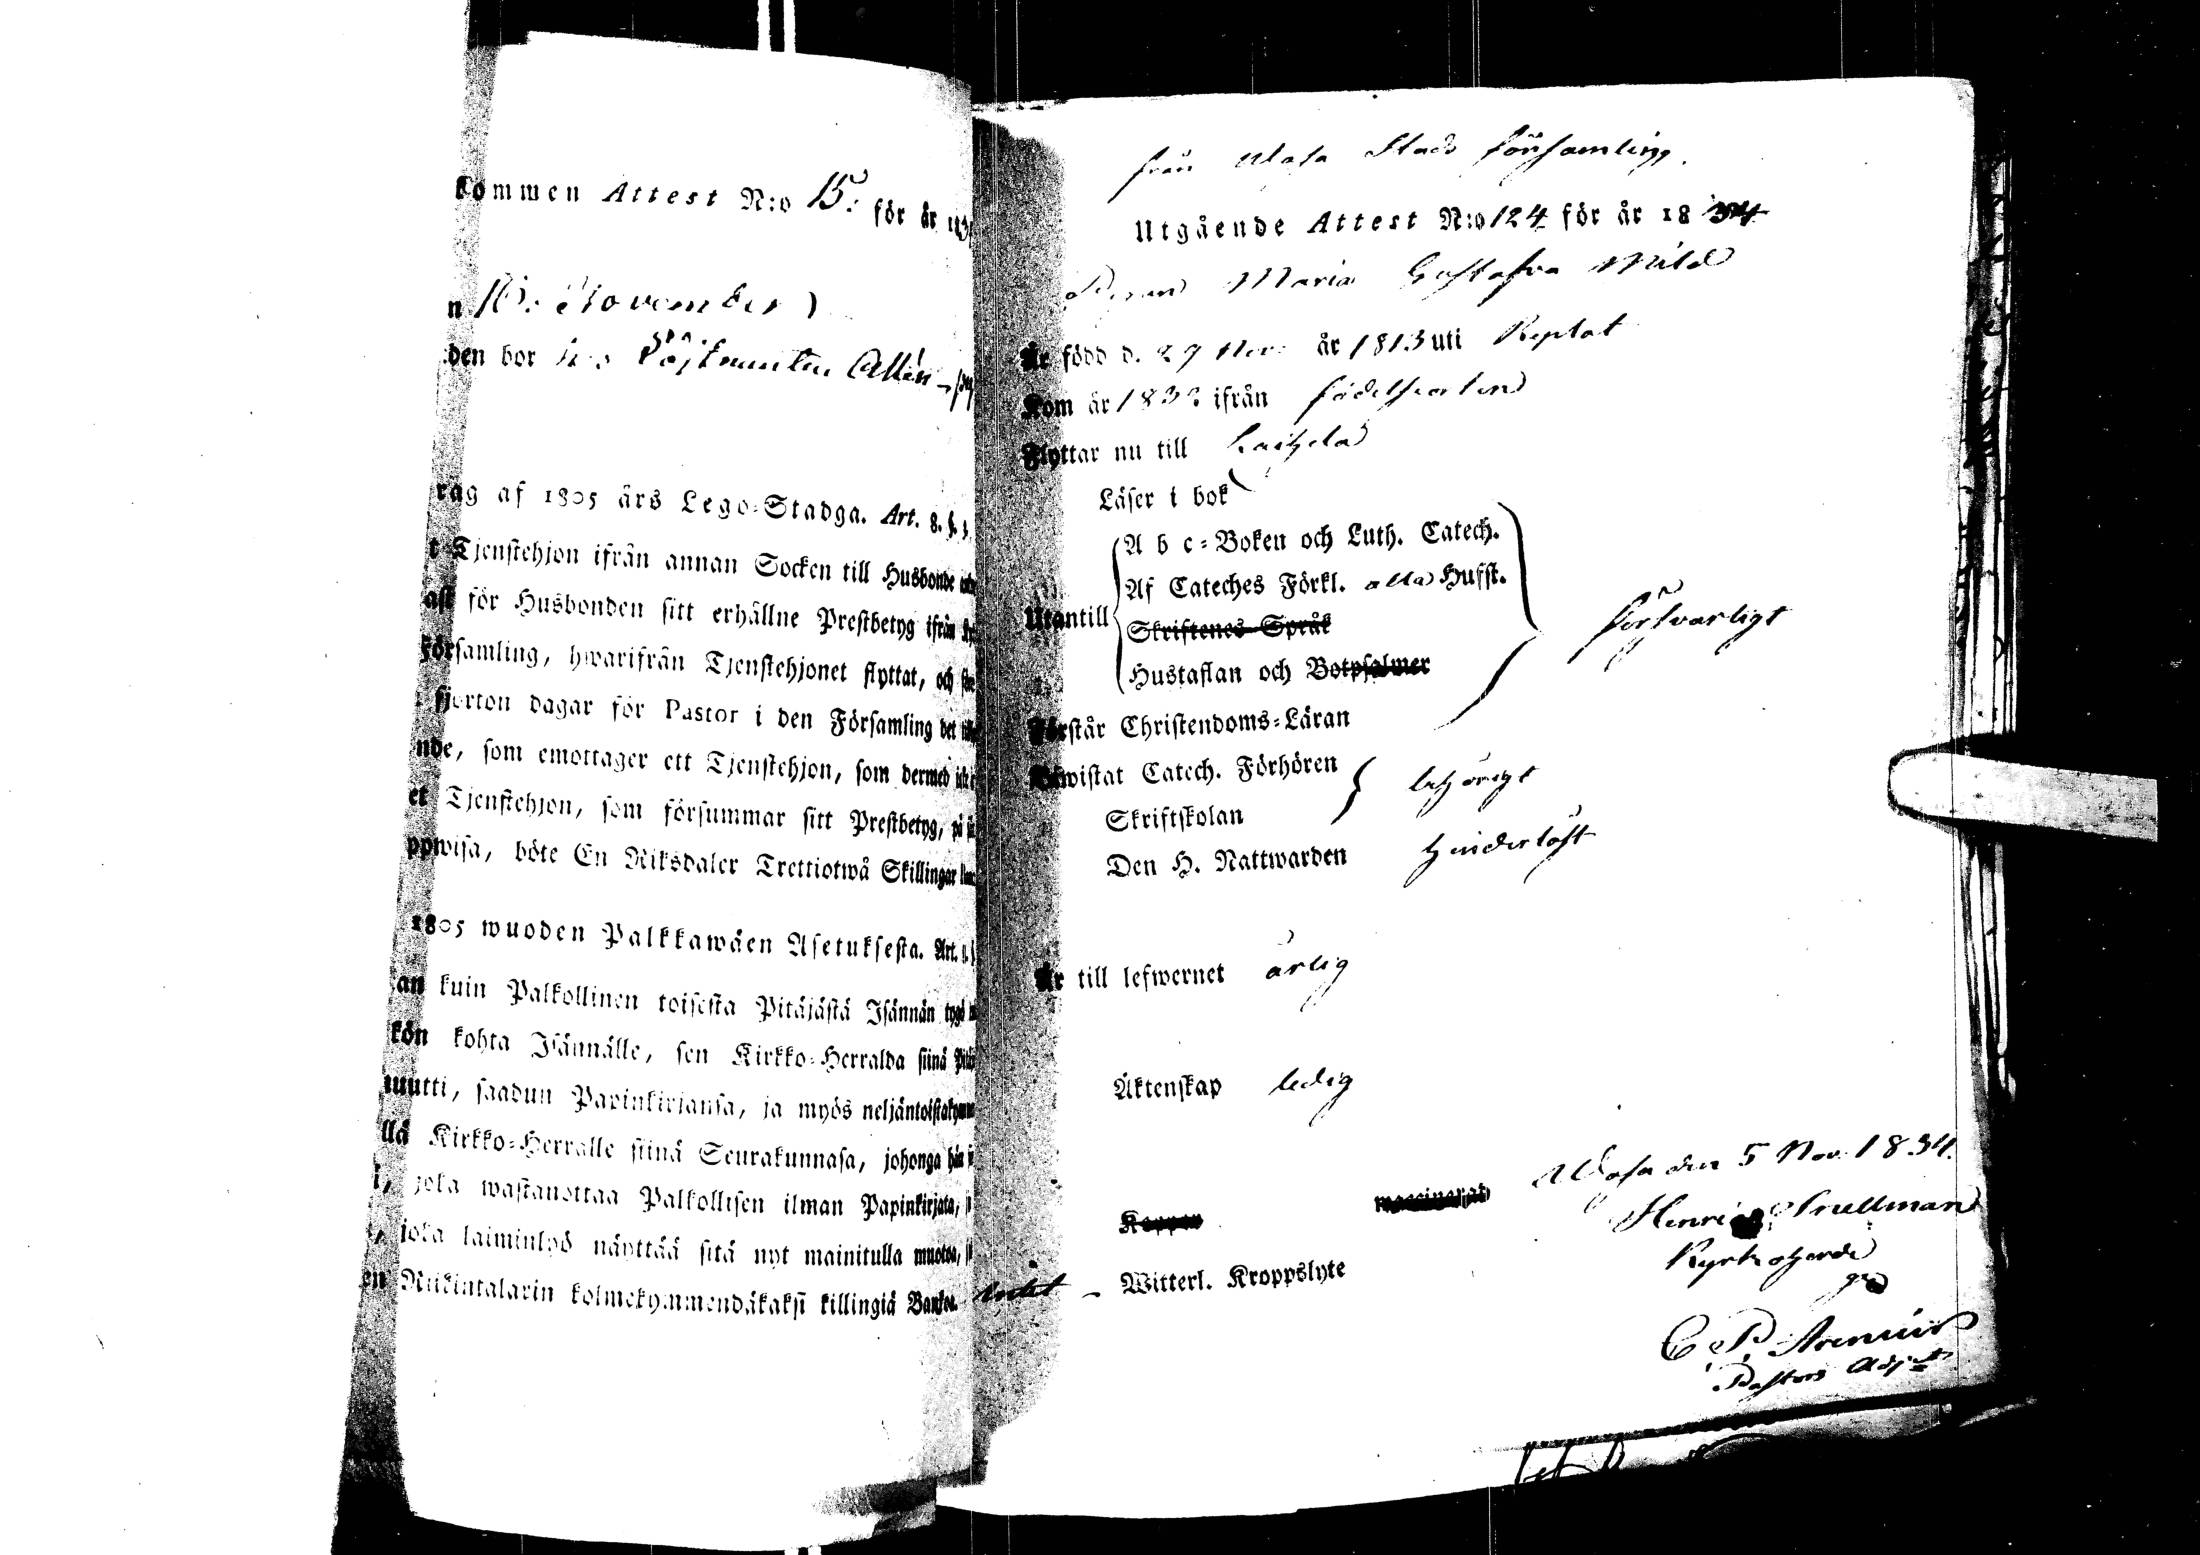 kommen Attest N:o 15. för år 183
n 16. November
den bor hos Löjtnanten Allén
rag af 1805 års Lego-Stadga. Art. 8. §.
t Tjenstehjon ifrån annan Socken till Husbonde
ast för Husbonden sitt erhållne Prestbetyg ifrån
Församling, hwarifrån Tjenstehjonet flyttat, och
fjorton dagar för Pastor i den Församling det
nde, som emottager ett Tjenstehjon, som dermed icke
et Tjenstehjon, som försummar sitt Prestbetyg, på
ppwisa, böte En Riksdaler Trettiotwå Skillingar
1805 wuoden Palkkawäen Asetuksesta. Art.
an kuin Palkollinen toisesta Pitäjästä Isännän tygö
kön kohta Isännälle, sen Kirkko-Herralda siinä
muutti, saadun Papinkirjansa, ja myös neljäntoistakymmen
llä Kirkko-Herralle siinä Seurakunnasa, johonga hän
i, joka wastanottaa Palkollisen ilman Papinkirjata,
, joka laiminlyö näyttää sitä nyt mainitulla muotoa,
en Riikintalarin kolmekymmendäkaksi killingiä Bankos.
från Wasa Stads församling.
Utgående Attest N:o 124 för år 1834
Pigan Maria Gustafva Mild
Är född d. 29 Nov: år 1813 uti Replot
Kom år 1832 ifrån födelseorten
Flyttar nu till Laihela
Läser i bok
A b c-Boken och Luth. Catech.
Af Cateches Förkl. alla Hufst.
Utantill
Skriftenes Språk
Hustaflan och Botpsalmer
försvarligt
Förstår Christendoms-Läran
Biwistat Catech. Förhören
behörigt
Skriftskolan
Den H. Nattwarden hinderlöst
Är till lefwernet ärlig
Äktenskap ledig
Wasa den 5 Nov. 1834.
Koppor
Henric
Kyrkoherde
Witterl. Kroppslyte intet
C. P.
Pastors Adj: